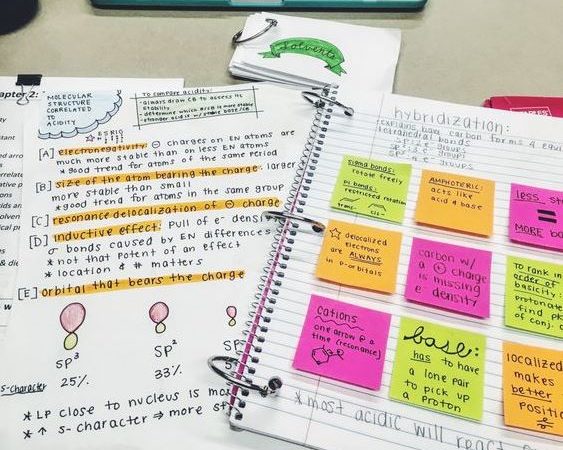 Solvents
apter 2:
MOLECULAR
STRUCTURE
CORRELATED
TO
ACIDITY
To compare acidity:
- always draw CB to access its
stability
- determine which is more stable
stronger acid is w/ stable
[A] electronegativity: ⊖ charges on EN atoms are
much more stable than on less EN atoms
*good trend for atoms of the same period
[B] size of the atom bearing the charge: larger
more stable than small
*good trend for atoms in the same group
[C] resonance delocalization of ⊖ charge
[D] inductive effect: Pull of e- densi
σ bonds caused by EN differences
*not that potent of an effect
* location & # matters
[E] orbital that bears the charge
SP³
SP²
SP
s-character
25%
33%
* LP close to nucleus is mo
* ↑ s-character ⇒ more st
hybridization:
explains how carbon forms 4 equi
tetrahedral bonds
groups
groups
groups
sigma bonds:
rotate freely
pi bonds:
restricted rotation
trans- cis-
AMPHOTERIC:
acts like
acid & base
less st
=
MORE ba
☆ delocalized
electrons
are ALWAYS
in p-orbitals
carbon w/
a ⊕ charge
is missing
e- density
To rank in
order of
basicity:
protonate
find pk
of conj.
cations
one arrow @ a
time (resonance)
base:
has to have
a lone pair
to pick up
a proton
localized
makes
better
positi
*most acidic will react